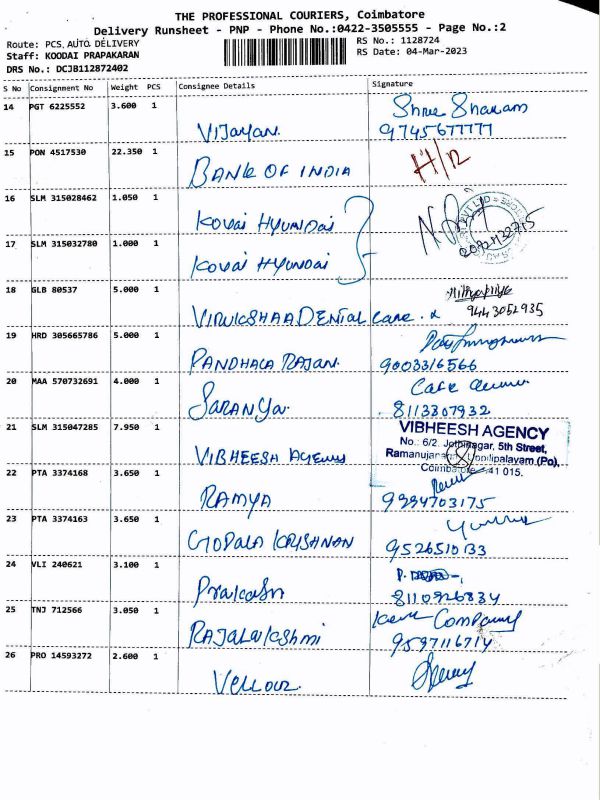 THE PROFESSIONAL COURIERS, Coimbatore
Delivery Runsheet - PNP - Phone No.:0422-3505555 - Page No.:2
Route: PCS AUTO DELIVERY RS No.: 1128724
Staff: KOODAI PRAPAKARAN RS Date: 04-Mar-2023
DRS No.: DCJB112872402
S No Consignment No Weight PCS Consignee Details Signature
14 PGT 6225552 3.600 1
Vijayan. Shree Sharam
9745677777
15 PON 4517530 22.350 1
BANK OF INDIA H/12
16 SLM 315028462 1.050 1
Kovai Hyundai
17 SLM 315032780 1.000 1
Kovai Hyundai
18 GLB 80537 5.000 1
VIRUKSHAA DENTAL Care. 9443052935
19 HRD 305665786 5.000 1
PANDHALA RAJAN. 9003316566
20 MAA 570732691 4.000 1
SARANYA. 8113307932
21 SLM 315047285 7.950 1
VIBHEESH AGENCY
VIBHEESH AGENCY
No.: 6/2, Jothinagar, 5th Street,
Ramanujanagar, Uppilipalayam (Po),
Coimbatore - 641 015.
22 PTA 3374168 3.650 1
RAMYA 9994703175
23 PTA 3374163 3.650 1
GOPALA KRISHNAN 9526510133
24 VLI 240621 3.100 1
Prakash 8110926834
25 TNJ 712566 3.050 1
RAJALAKSHMI Company
9597116714
26 PRO 14593272 2.600 1
Vellour